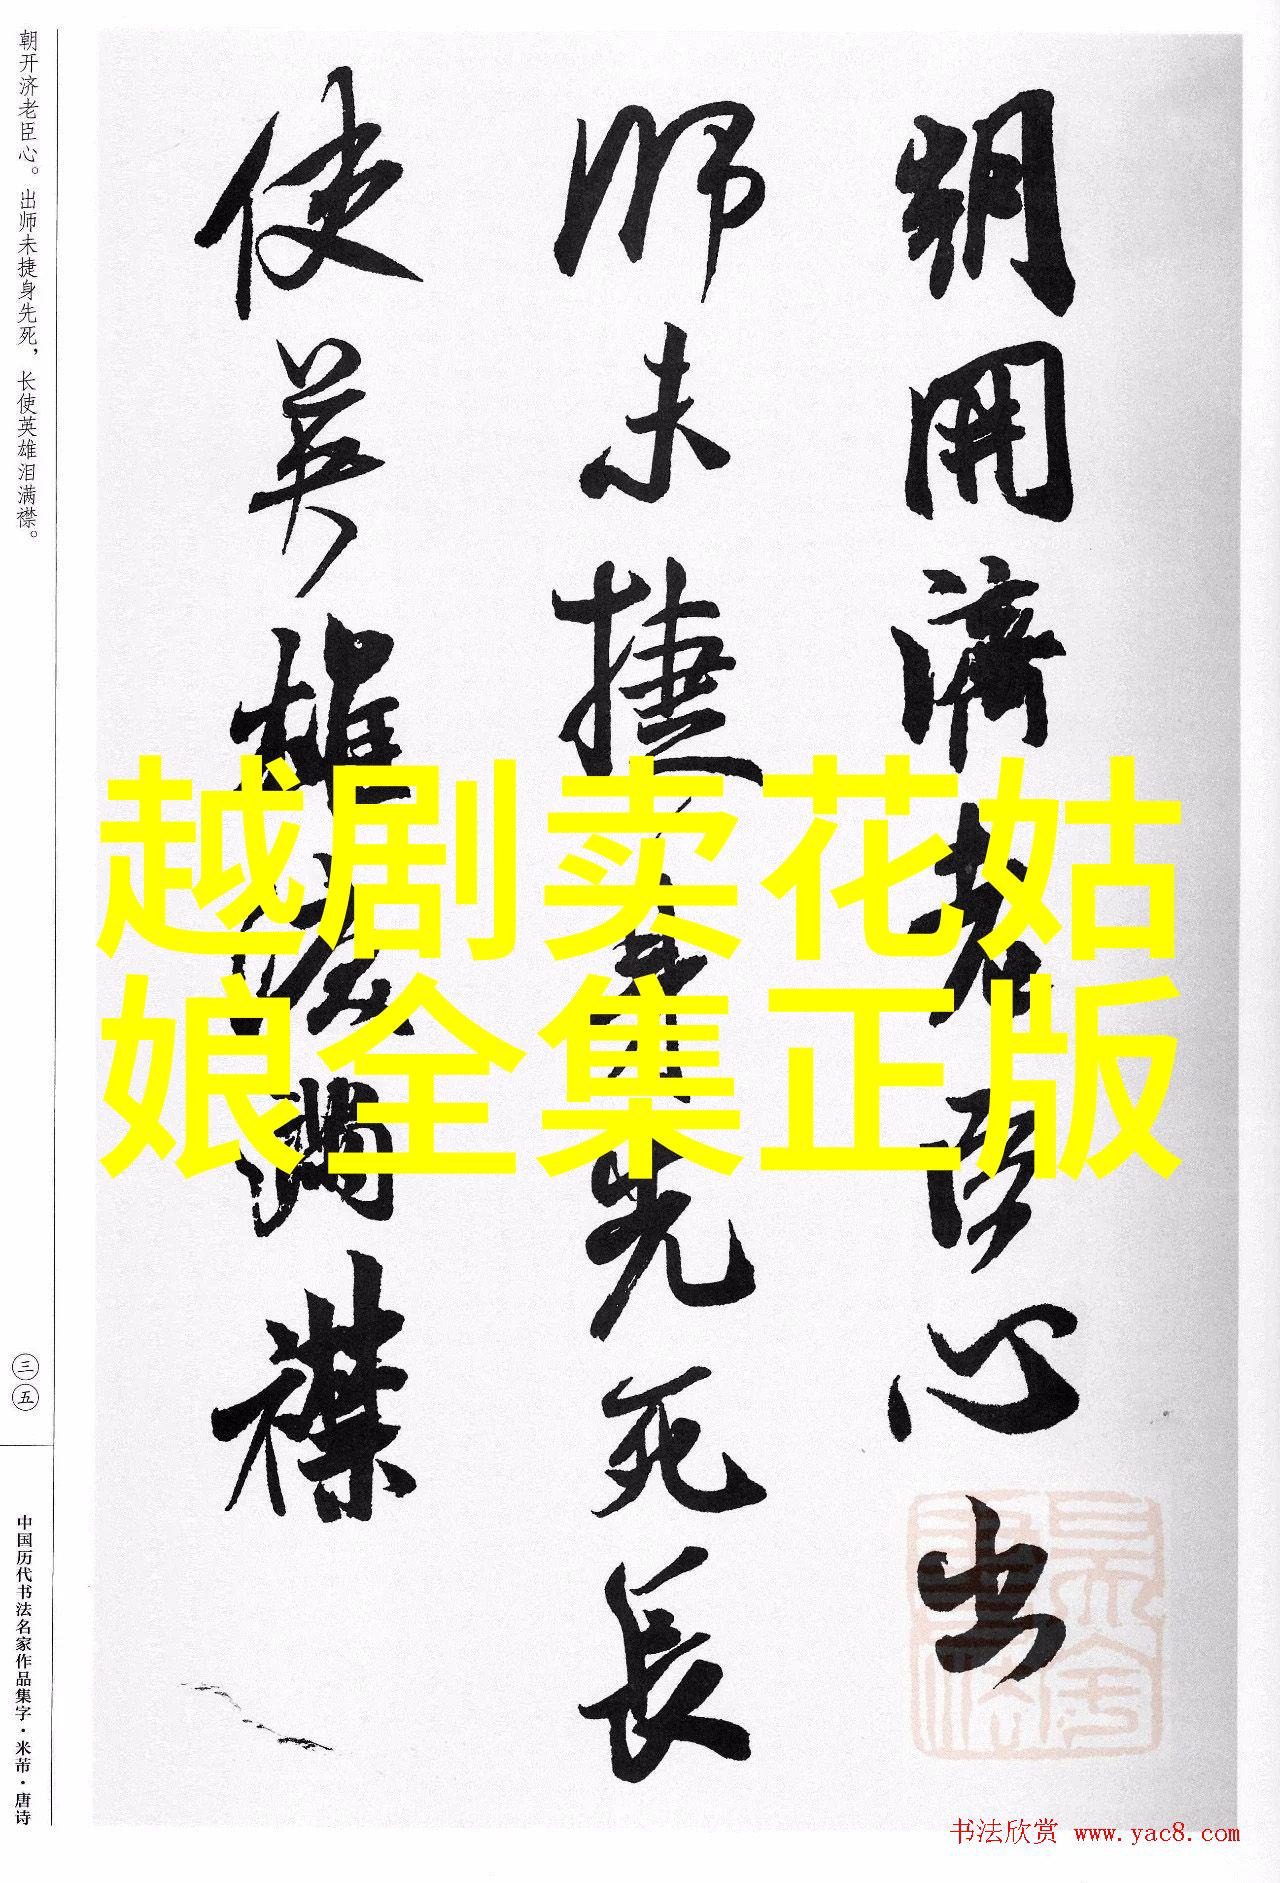 朝開濟老臣心出
師未捷身先死長
使英雄淚滿襟
越剧卖花姑
娘全集正版
朝开济老臣心。出师未捷身先死，长使英雄泪满襟。
三五
中国历代书法名家作品集字·米芾·唐诗
书法欣赏 www.yac8.com